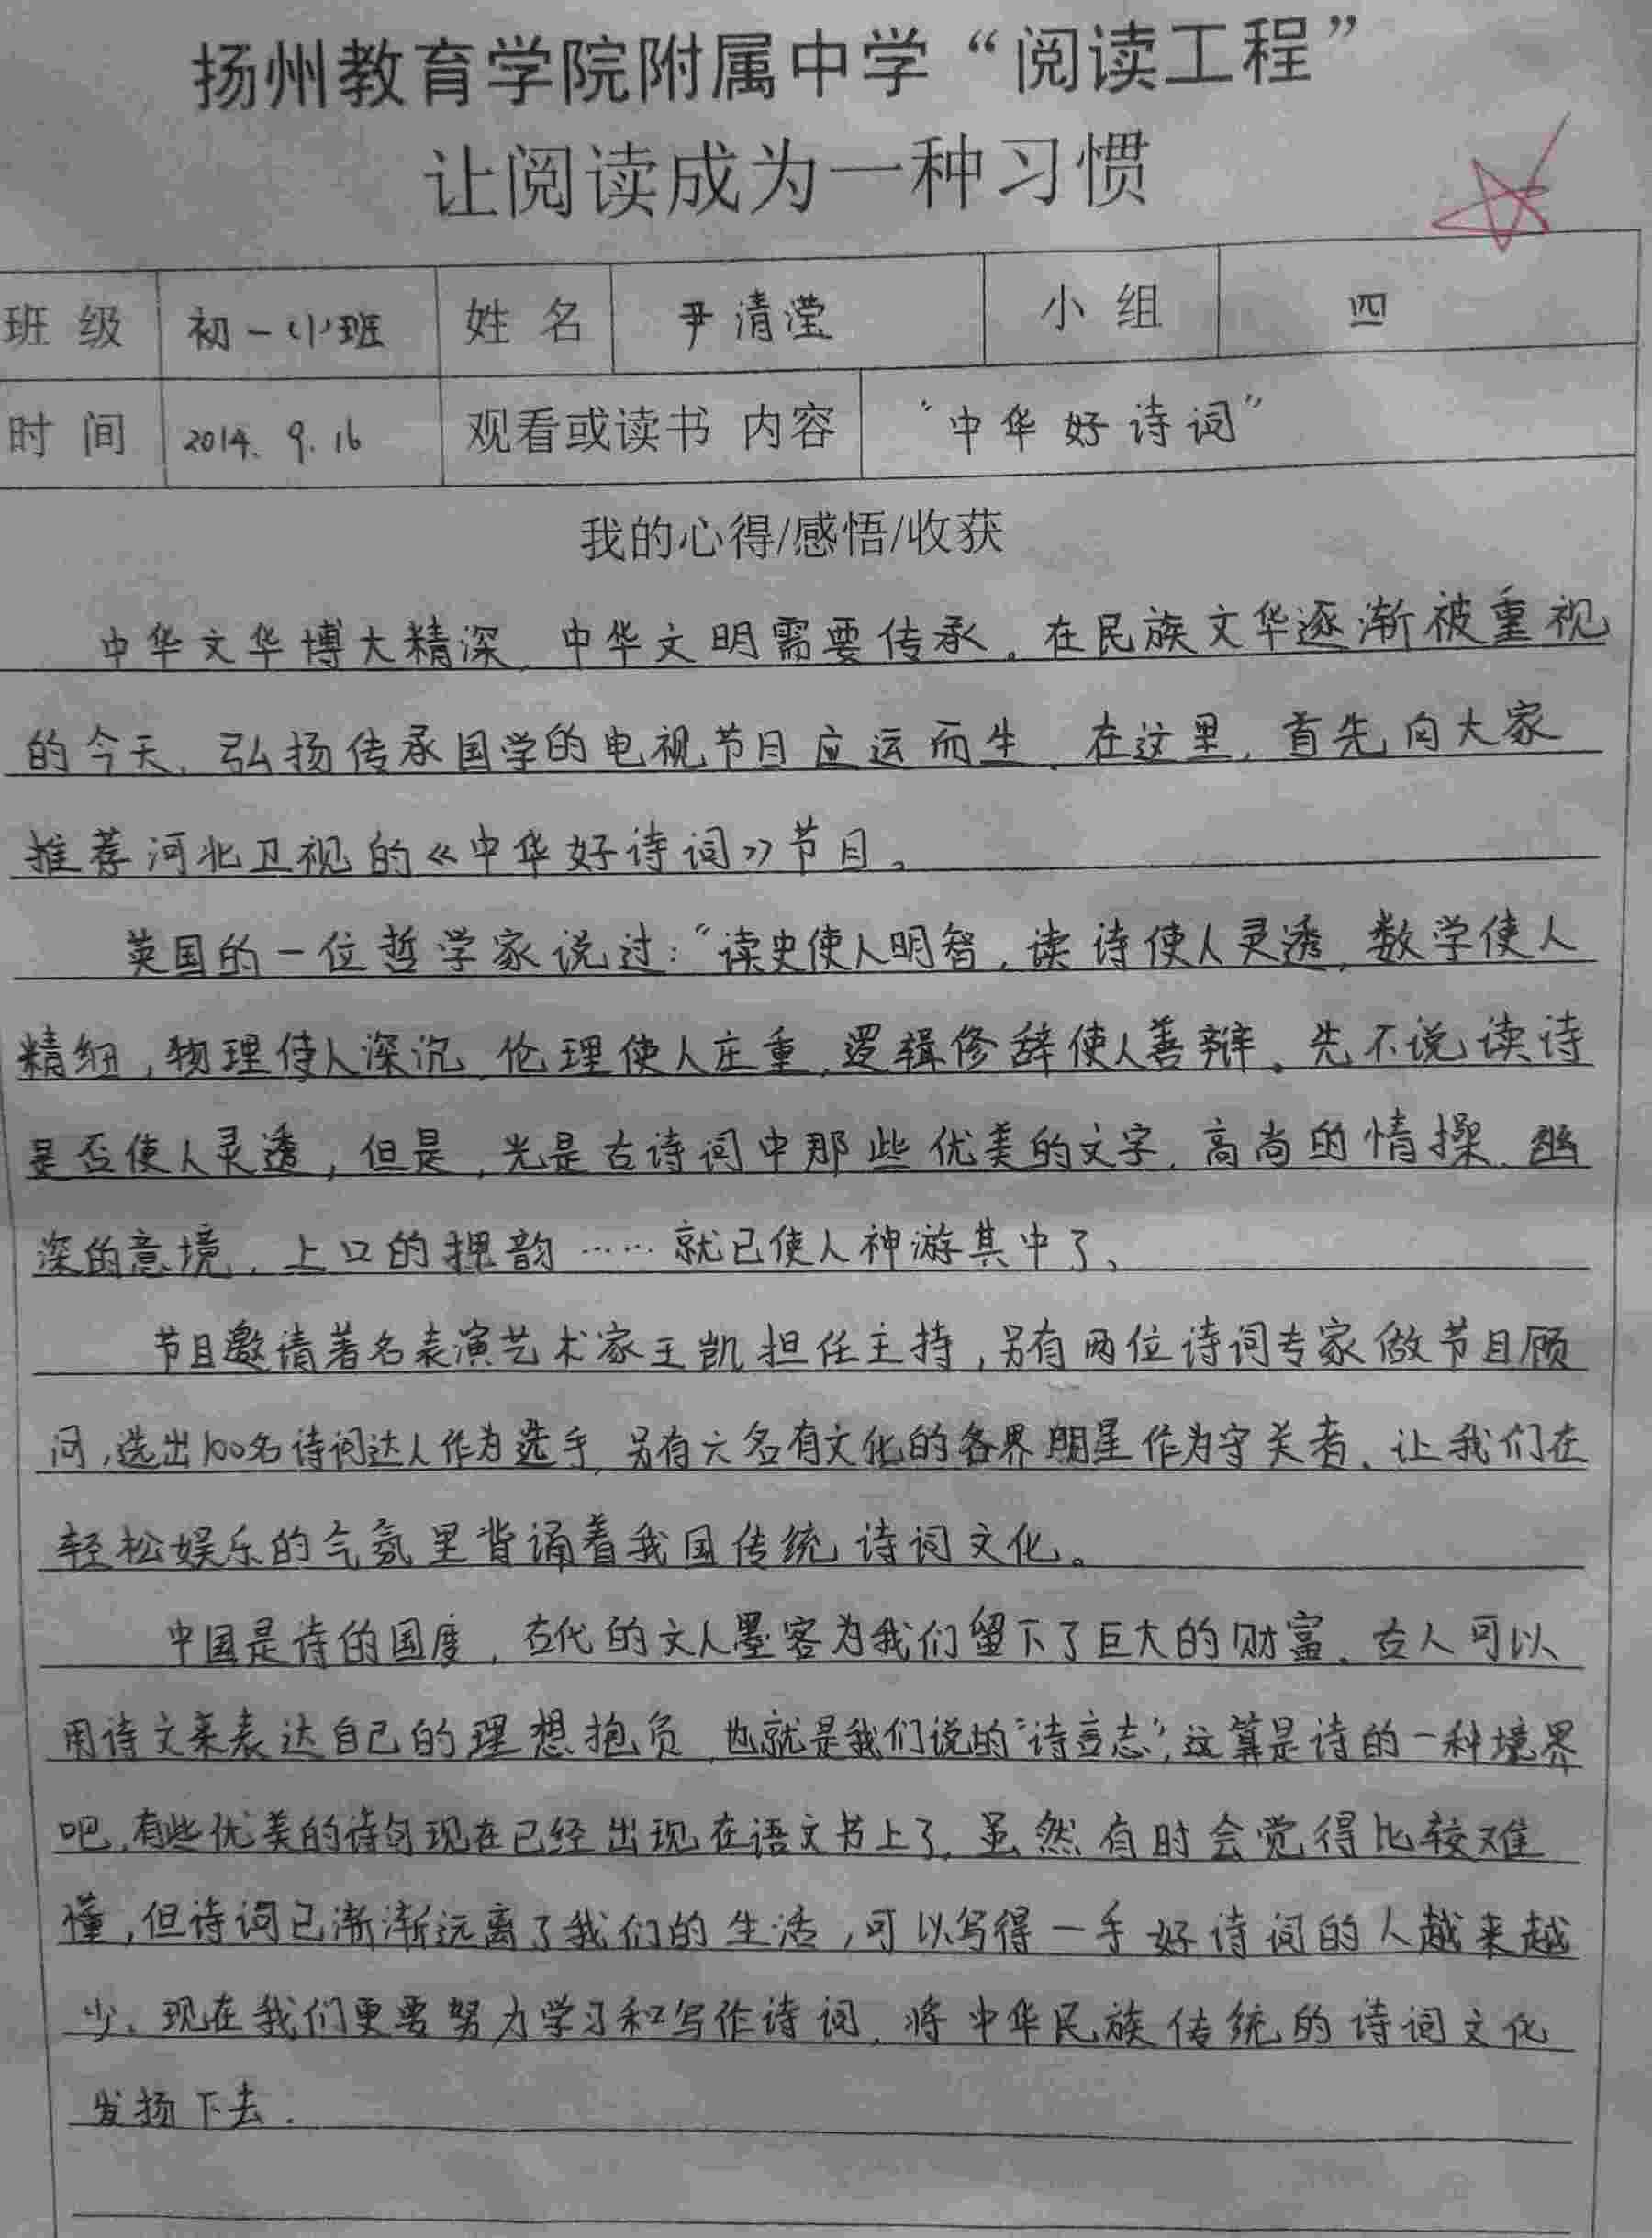 扬州教育学院附属中学“阅读工程”
让阅读成为一种习惯
班级 初一小班 姓名 尹清滢 小组 四
时间 2014.9.16 观看或读书 内容 “中华好诗词”
我的心得/感悟/收获
中华文华博大精深,中华文明需要传承。在民族文华逐渐被重视
的今天,弘扬传承国学的电视节目应运而生。在这里,首先向大家
推荐河北卫视的《中华好诗词》节目。
英国的一位哲学家说过:“读史使人明智,读诗使人灵透,数学使人
精细,物理使人深沉,伦理使人庄重,逻辑修辞使人善辩。先不说读诗
是否使人灵透,但是,光是古诗词中那些优美的文字、高尚的情操、幽
深的意境、上口的押韵……就已使人神游其中了、
节目邀请著名表演艺术家王凯担任主持,另有两位诗词专家做节目顾
问,选出100名诗词达人作为选手,另有六名有文化的各界明星作为守关者、让我们在
轻松娱乐的气氛里背诵着我国传统诗词文化。
中国是诗的国度,古代的文人墨客为我们留下了巨大的财富。古人可以
用诗文来表达自己的理想抱负,也就是我们说的“诗言志”,这算是诗的一种境界
吧,有些优美的诗句现在已经出现在语文书上了,虽然有时会觉得比较难
懂,但诗词已渐渐远离了我们的生活,可以写得一手好诗词的人越来越
少。现在我们更要努力学习和写作诗词,将中华民族传统的诗词文化
发扬下去.